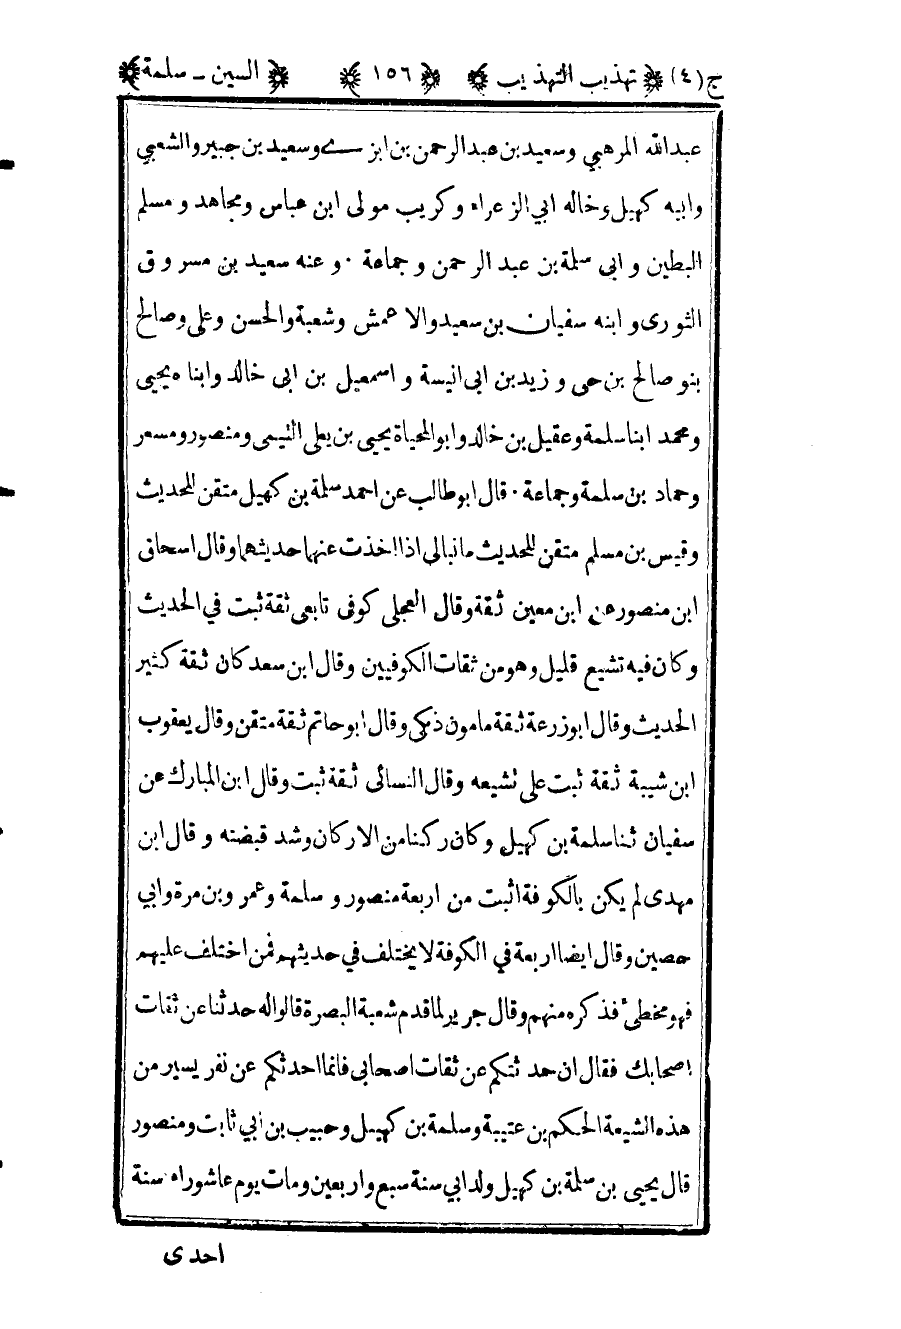 ج(٤) تهذيب التهذيب ١٥٦ السين - سلمة
عبدالله المرهبي وسعيد بن عبدالرحمن بن ابزے وسعيد بن جبير والشعبي
وابيه كهيل وخاله ابي الزعراء وكريب مولى ابن عباس ومجاهد ومسلم
البطين وابى سلمة بن عبد الرحمن وجماعة ٠ وعنه سعيد بن مسروق
الثورى وابنه سفيان بن سعيد والاعمش وشعبة والحسن وعلى وصالح
بنو صالح بن حى وزيد بن ابى انيسة واسمعيل بن ابى خالد وابناه يحيى
ومحمد ابنا سلمة وعقيل بن خالد وابو المحياة يحيى بن يعلى التيمى ومنصور ومسعر
وحماد بن سلمة وجماعة ٠ قال ابو طالب عن احمد سلمة بن كهيل متقن للحديث
وقيس بن مسلم متقن للحديث ما نبالى اذا اخذت عنهما حديثهما وقال اسحاق
ابن منصور عن ابن معين ثقة وقال العجلى كوفى تابعى ثقة ثبت في الحديث
وكان فيه تشيع قليل وهو من ثقات الكوفيين وقال ابن سعد كان ثقة كثير
الحديث وقال ابوزرعة ثقة مامون ذكى وقال ابو حاتم ثقة متقن وقال يعقوب
ابن شيبة ثقة ثبت على تشيعه وقال النسائى ثقة ثبت وقال ابن المبارك عن
سفيان ثنا سلمة بن كهيل وكان ركنا من الاركان وشد قبضته وقال ابن
مهدى لم يكن بالكوفة اثبت من اربعة منصور وسلمة وعمرو بن مرة وابي
حصين وقال ايضا اربعة في الكوفة لا يختلف في حديثهم فمن اختلف عليهم
فهو مخطئ فذكره منهم وقال جرير لما قدم شعبة البصرة قالوا له حدثنا عن ثقات
اصحابك فقال ان حدثتكم عن ثقات اصحابى فانما احدثكم عن نفر يسير من
هذه الشيعة الحكم بن عتيبة وسلمة بن كهيل وحبيب بن أبي ثابت ومنصور
قال يحيى بن سلمة بن كهيل ولد ابي سنة سبع واربعين ومات يوم عاشوراء سنة
احدى